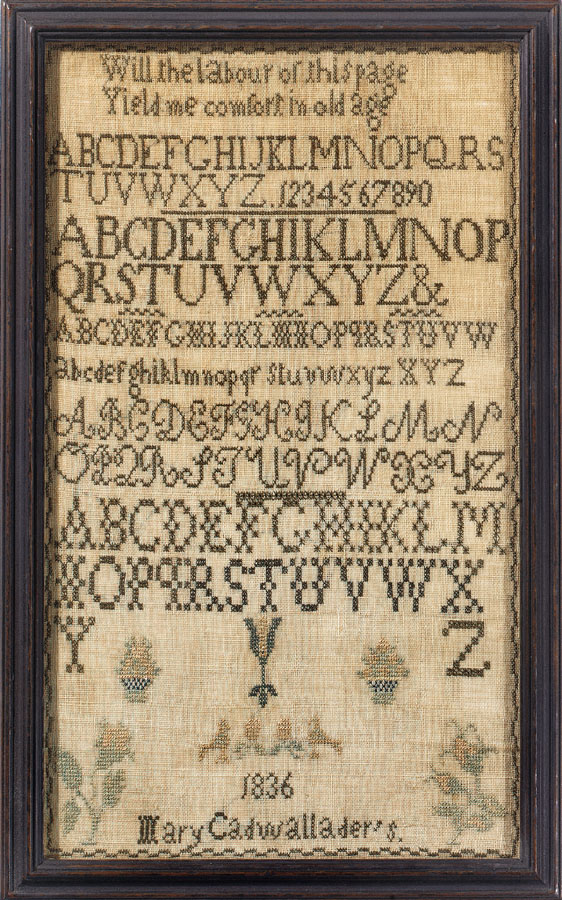 Will the labour of this page
Yield me comfort in old age
ABCDEFGHIJKLMNOPQRS
TUVWXYZ.1234567890
ABCDEFGHIKLMNOP
QRSTUVWXYZ&
ABCDEFGHIJKLMNOPQRSTUVW
abcdefghiklmnopqr stuvwxyz XYZ
ABCDEFGHIJKLMN
OPQRSTUVWXYZ
ABCDEFGHIKLM
NOPQRSTUVWX
Y Z
1836
Mary Cadwallader's.